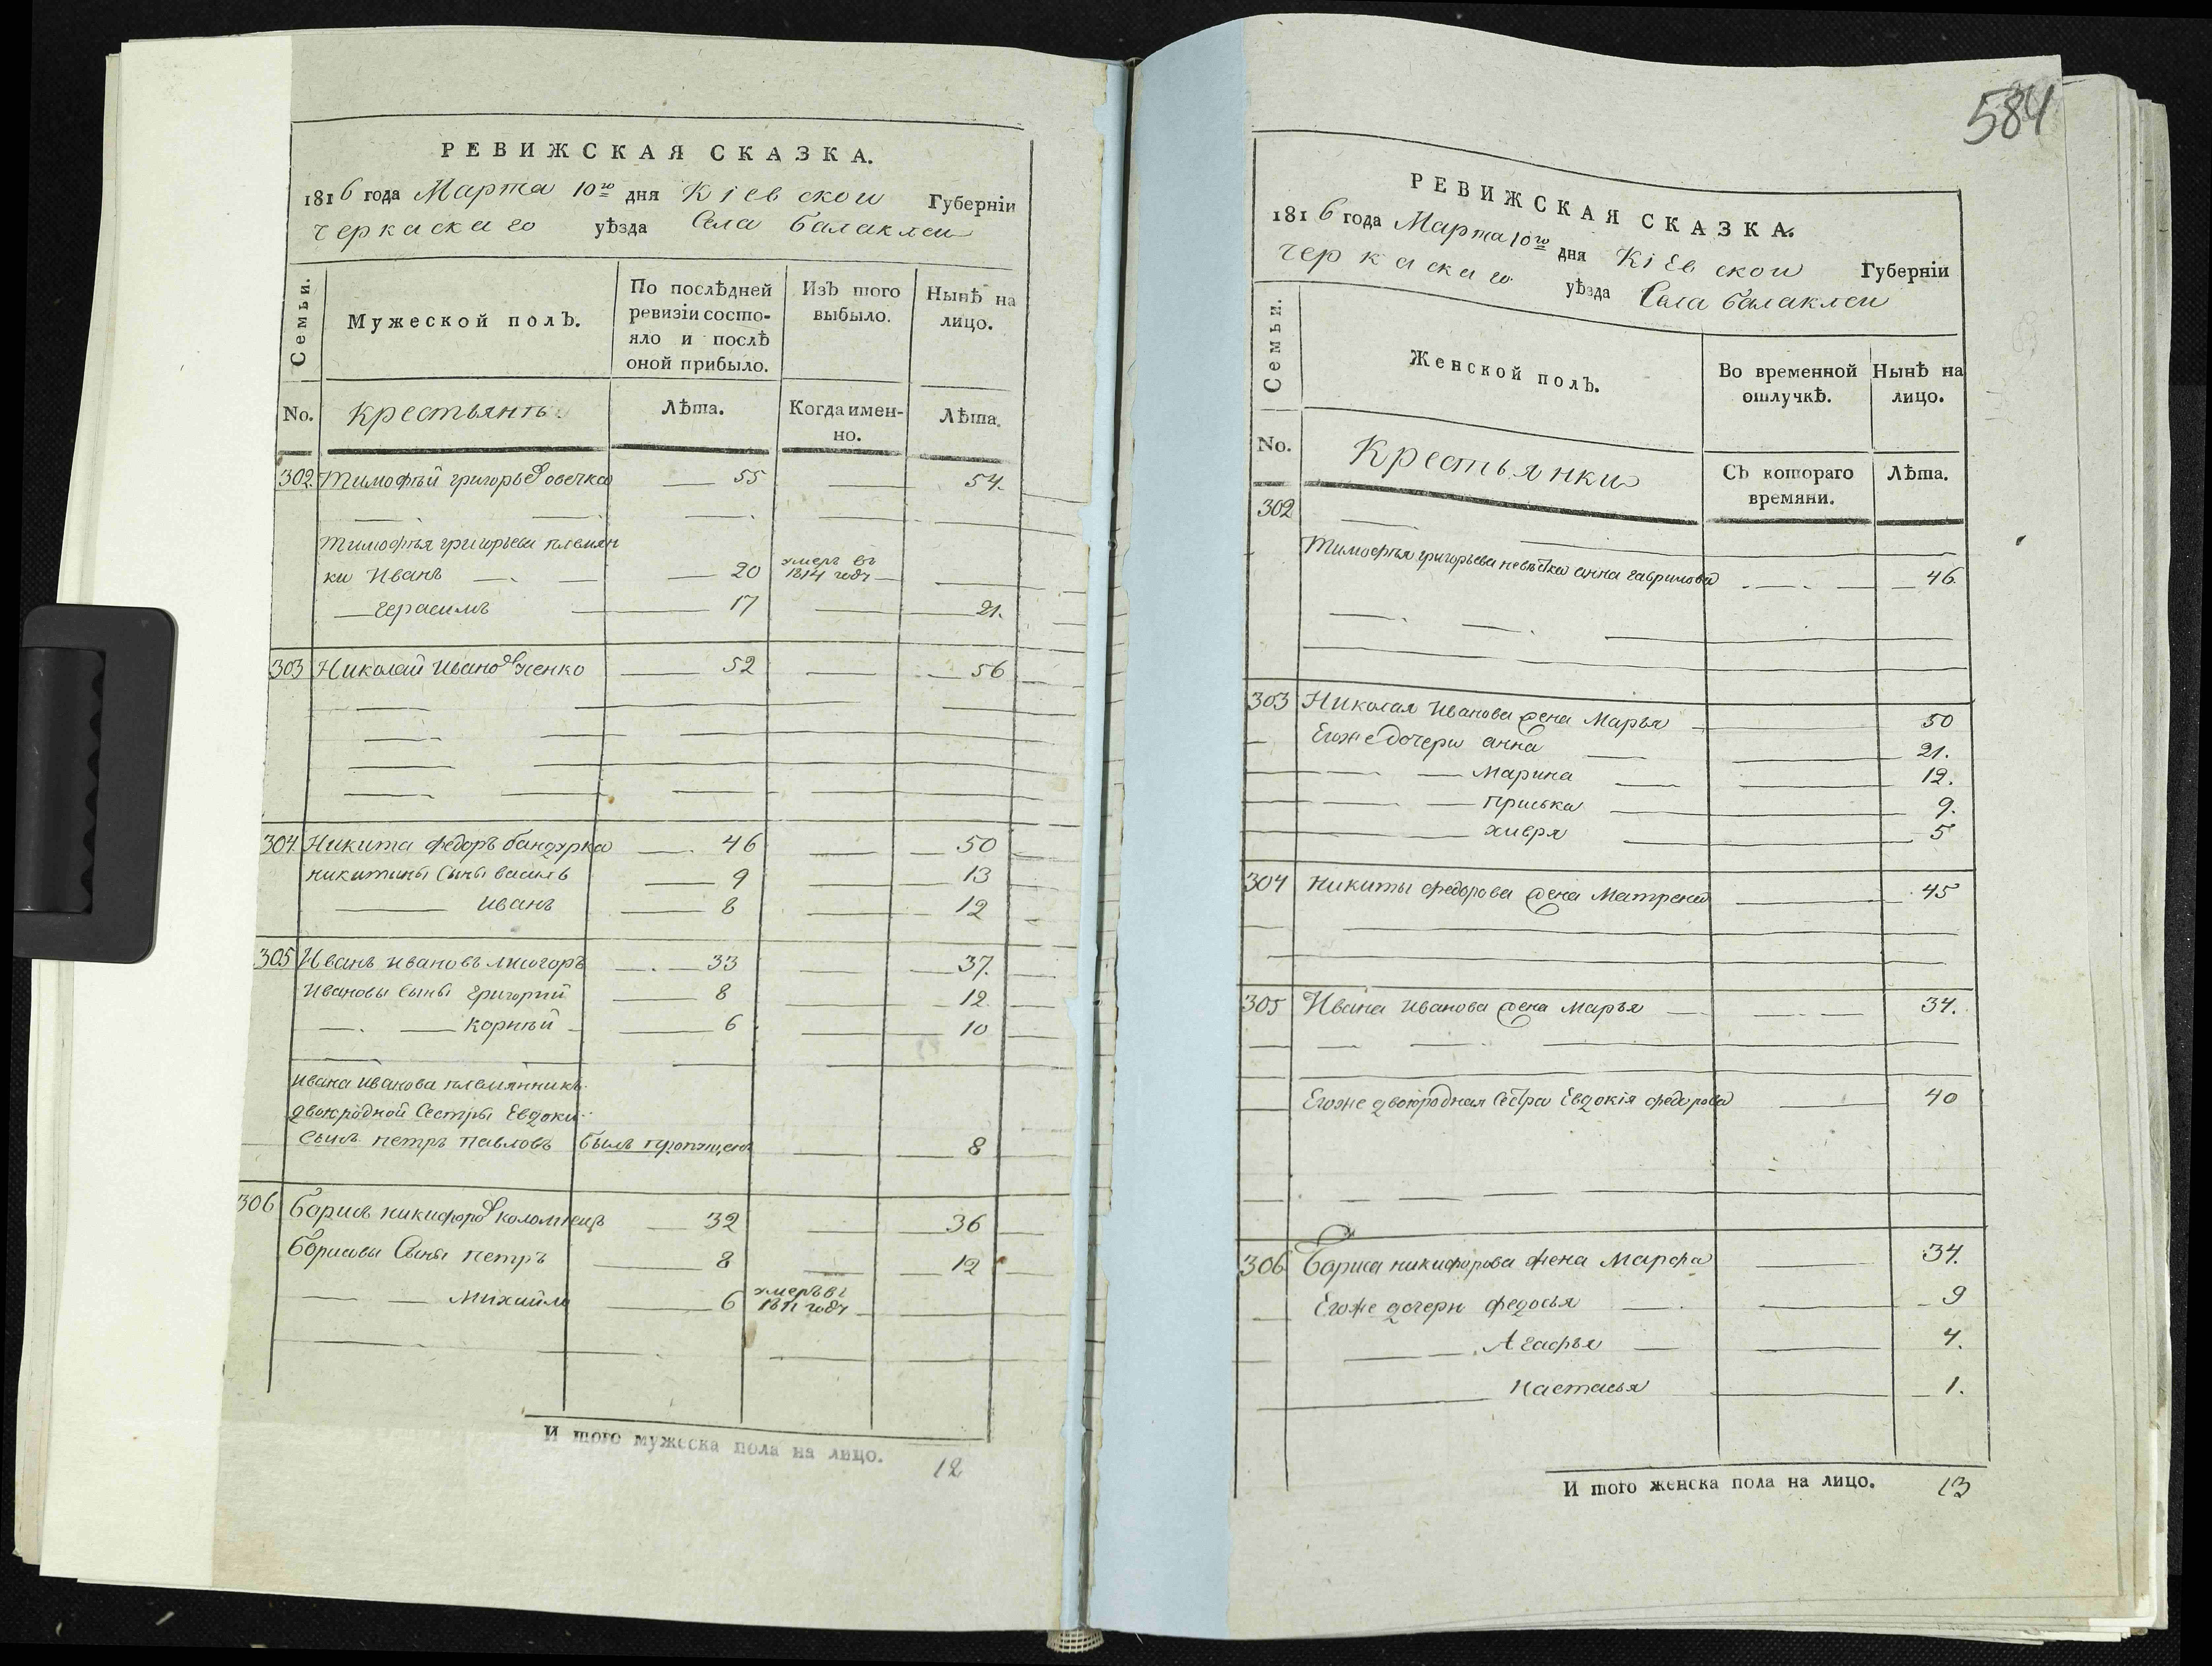 584
РЕВИЖСКАЯ СКАЗКА.
1816 года Марта 10го дня Кіевской Губерніи
Черкаскаго уѣзда Села Балаклеи
Семьи.
Мужеской полъ.
По послѣдней ревизіи состо-
яло и послѣ
оной прибыло.
Изъ того
выбыло.
Нынѣ на
лицо.
No.
Крестьянѣ
Лѣта.
Когда имен-
но.
Лѣта.
302. Тимофѣй григорьев овечка 55 54.
Тимофѣя григорьева племян
ки Иванъ 20 умеръ въ 1814 году
герасимъ 17 21.
303 Николай Иванов ченко 52 56
304 Никита федоръ бандурка 46 50
никитины сыны василь 9 13
иванъ 8 12
305 Иванъ ивановъ лисогоръ 33 37.
Ивановы сыны григорий 8 12
корнѣй 6 10
ивана иванова племянникъ
двоюродной сестры Евдоки
сынъ петръ павловъ былъ пропущенъ 8
306 Борисъ никифоров коломиецъ 32 36
Борисовы сыны петръ 8 12
михайло 6 умеръ въ 1811 году
И того мужеска пола на лицо. 12
РЕВИЖСКАЯ СКАЗКА.
1816 года Марта 10го дня Кіевской Губерніи
Черкаскаго уѣзда Села балаклеи
Семьи.
Женской полъ.
Во временной
отлучкѣ.
Нынѣ на
лицо.
No.
Крестьянки
Съ котораго
времяни.
Лѣта.
302
Тимофѣя григорьева невѣстка анна гаврилова 46.
303 Николая иванова жена Марья 50
Егоже дочери анна 21.
Марина 12.
приська 9.
хивря 5
304 никиты федорова жена Матрена 45
305 Ивана иванова жена марья 34.
Егоже двоюродная сестра Евдокія федорова 40
306 Бориса никифорова жена Марфа 34.
Егоже дочери федосья 9
Агафья 4.
настасья 1.
И того женска пола на лицо. 13